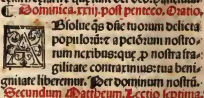 ¶ Dominica .xxiij. post penteco. Oratio.
ABsolue q̄s dn̄e tuorum delicta
populorū: ⁊ a pctōrum nostro
rum nexibus: que ,p nostra fra-
gilitate contraximus: tua beni
gnitate liberemur. Per dominum nostrū.
Secundum Mattheum. Lectio septima.